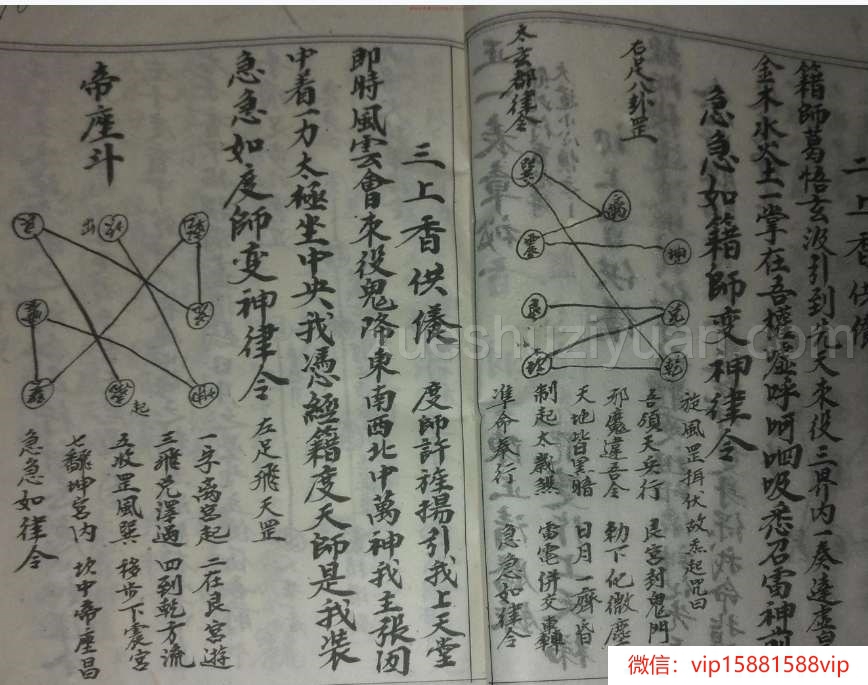 二上香供儀
籍師葛悟玄汲引到先天來役三界內一奏達虛
金木水火土一掌在吾權噓呼呵呬吸悉召雷神前
急急如籍師变神律令
旋風罡揖伏故炁起咒曰
吾領天兵行 艮宮封鬼門
邪魔違吾令 勅下化微塵
天地皆黑暗 日月一齊昏
制起太歲煞 雷電併交轟
準命奉行 急急如律令
右足八卦罡
巽
離
震
坤
艮
兑
坎
乾
太玄都律令
三上香供儀
度師許旌揚引我上天堂
即時風雲會來役鬼降東南西北中萬神我主張罡
中着一力太極坐中央我憑經籍度天師是我裝
急急如度師变神律令
左足飛天罡
一步离宮起 二在艮宮遊
三飛兑澤過 四到乾方流
五水罡風巽 移步下震宮
七翻坤宮内 坎中帝座昌
急急如律令
帝座斗
出
起
rueshuziyuan.com
微信：vip15881588vip